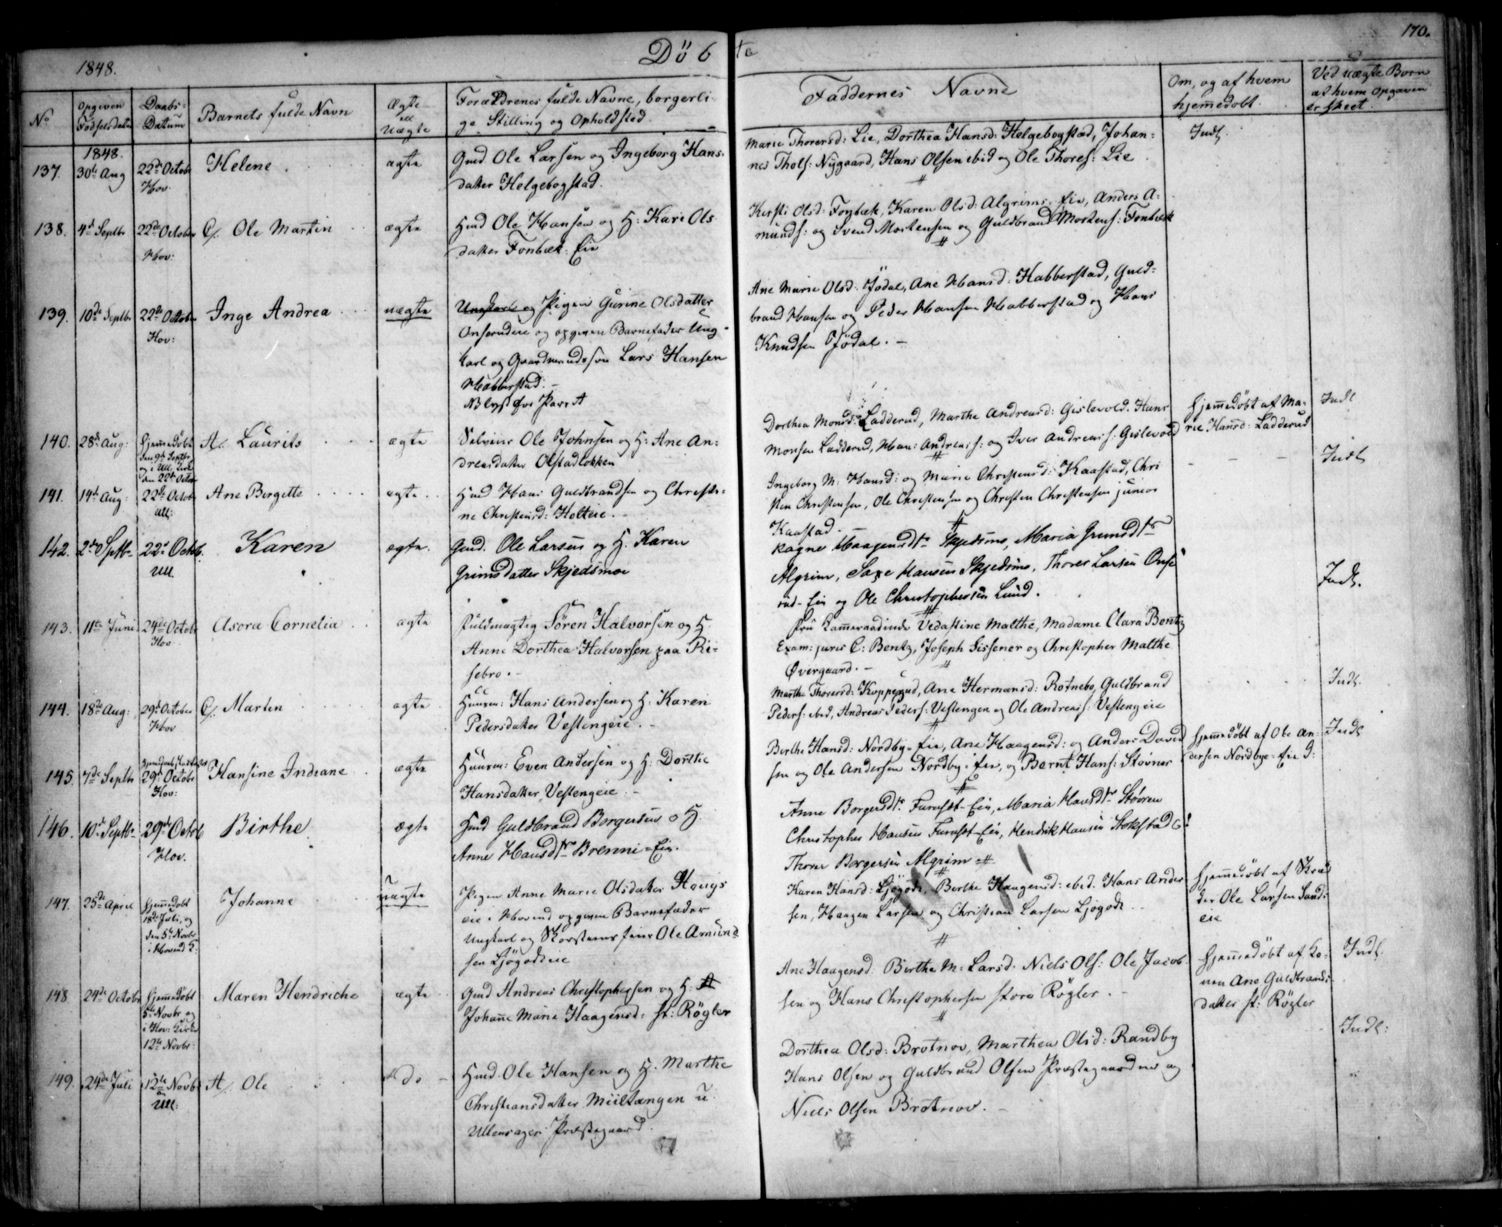 1848.
Döbte
170.
No
Opgiven Födselsdato
Daabs-Datum
Barnets fulde Navn
Ægte ell Uægte
Forældrenes fulde Navne, borgerlige Stilling og Opholdsted
Faddernes Navne
Om, og af hvem hjemmedöbt.
Ved uægte Børn af hvem Opgaven er skeet.
1848.
137. 30te Aug 22de Octobr Hov. Helene. ægte
Gmd Ole Larsen og Ingeborg Hans-
datter Helgebogstad.
Marie Thorersd: Lie, Dorthea Hansd: Helgebogstad, Johan-
nes Thols: Nygaard, Hans Olsen ibid og Ole Thores: Lie
Indl.
138. 4de Septbr 22de October Hov: C/. Ole Martin ægte
Hmd Ole Hansen og H: Kari Ols
datter Fonbæk-Eie
Kirsti Olsd: Fonbæk, Karen Olsd: Algrims-Eie, Anders A-
munds: og Svend Mortensen og Guldbrand Mortens: Fonbæk
139. 10de Septbr 22de Octobr Hov: Inge Andrea uægte
Ungkarl og Pigen Gurine Olsdatter
og opgiven Barnefader Ung-
karl og Gaardmandssøn Lars Hansen
Habberstad.
Ane Marie Olsd: Jödal, Ane Hansd: Habberstad, Guld-
brand Hansen og Peder Hansen Habberstad og Hans
Knudsen Jödal. -
140. 28de Aug: Hjemmedöbt den 9de Septbr og i Ull. Kirke den 22de Octbr A/. Laurits ægte
Selveier Ole Johnsen og H: Ane An-
dreasdatter Olstadlökken
Dorthea Monsd: Ladderud, Marthe Andreasd: Gislevold. Hans
Monsen Ladderud, Hans Andreas: og Iver Andreas: Gislevold
hjemmedöbt af Ma-
rie Hansd: Ladderud
Indl
141. 14de Aug: 22de Octobr Ull: Ane Borgette ægte
Hmd Hans Guldbrandsen og Christi-
ne Christensd: Holtere. -
Ingeborg M. Hansd: og Marie Christensd: Kaastad, Chri
sten Christensen, Ole Christensen og Christen Christensen junior
Kaastad.
Indl
142. 2den Septbr 22de Octob. Ull. Karen ægte.
Gmd. Ole Larsen og H. Karen
Grimsdatter Skjedsmoe
Ragne Haagensdtr Skjedsmo, Maria Grimsdtr
Algrim, Saxe Hansen Skjedsmo, Thorer Larsen
Eie og Ole Christophersen Lund.
Indl.
143. 11te Juni 24de Octobr Hov Asora Cornelia ægte
Fuldmægtig Sören Halvorsen og H
Anne Dorthea Halvorsen paa Ri-
sebro. -
Fru Kammeraadinde Vedastine Malthe, Madame Clara Bentz
Exam: juris C: Bentz, Joseph Gissener og Christopher Malthe
Övergaard. -
144. 18de Aug: 29de October Hov C/. Martin ægte
Huusm: Hans Andersen og H: Karen
Pedersdatter Vestengeie. -
Marthe Thorersd: Koppegud, Ane Hermansd: Rotnebo, Guldbrand
Peders: ibid, Andreas Peders: Vestengen og Ole Andreas: Vestengeie
Indl.
145. 7de Septbr 29de Octobr Hov: Hansine Indiane ægte
Huusm: Even Andersen og H: Dorthe
Hansdatter, Vestengeie. -
Berthe Hansd: Nordby-Eie, Ane Haagensd: og Anders David
sen og Ole Andersen Nordby-Eie, og Bernt Hans: Stovner
hjemmedöbt af Ole An-
dersen Nordbye-Eie
Indl
146. 10de Septbr 29de Octob Hov. Birthe ægte
Hmd Guldbrand Borgersen o H.
Anne Hansdtr Brenni-Eie.
Anne Borgersdtr Furuset-Eie, Maria Hansdtr Större
Christopher Hansen Furuset-Eie, Hendrik Hansen Stokstad
Thore Borgersen Algrim
147. 25de April hjemmedöbt 18de Juli, og den 5te Novbr i Hovind K. Johanne uægte
Pigen Anne Marie Olsdatter Houg
eie i Hovind opgiven Barnefader
Ungkarl og Skorsteensfeier Ole Amund
sen Ljögodteie
Karen Hansd: Ljögodt, Berthe Haagensd: ibid. Hans Ander
sen, Haagen Larsen og Christian Larsen Ljögodt
hjemmedöbt af Skræd
der Ole Larsen Sand-
eie
148 24de October hjemmedöbt 5te Novbr og i Hov: Kirke 12te Novbr: Maren Hendriche ægte
Gmd Andreas Christophersen og H:
Johanne Marie Haagensd: st: Rögler
Ane Haagensd. Birthe M: Larsd. Niels Ols: Ole Jacob
sen og Hans Christophersen store Rögler.
hjemmedöbt af Ko-
nen Ane Guldbrands-
datter st: Rögler
Indl.
149. 24de Juli 12te Novbr Ull: A/. Ole do
Hmd Ole Hansen og H. Marthe
Christiansdatter Miiltangen u:
Ullensagers Præstegaard.
Dorthea Olsd: Brotnov, Marthea Olsd: Randby
Hans Olsen og Guldbrand Olsen Præstegaarden og
Niels Olsen Brotnov. -
Indl: